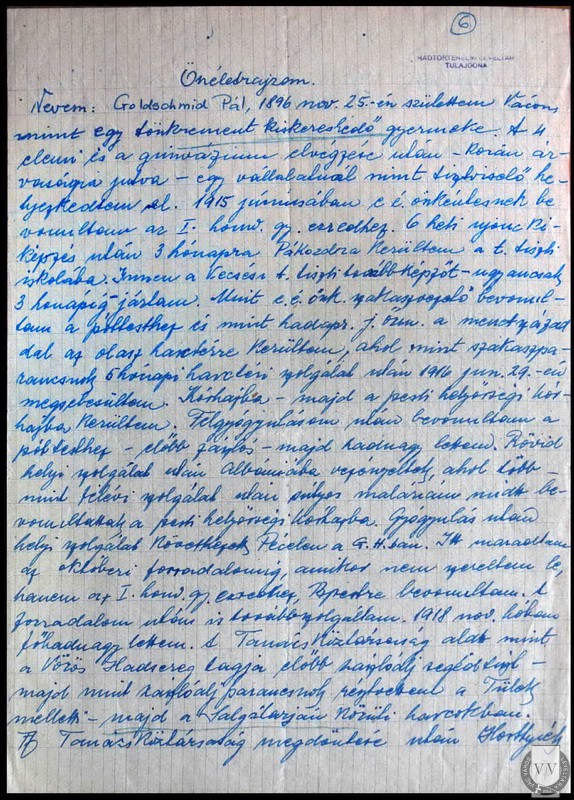 6
HADTÖRTÉNELMI LEVÉLTÁR
TULAJDONA
Önéletrajzom.
Nevem: Goldschmid Pál, 1896 nov. 25.-én születtem Vácon,
mint egy tönkrement kiskereskedő gyermeke. A 4
elemi és a gimnázium elvégzése után - korán ár-
vaságra jutva - egy vállalatnál mint tisztviselő he-
lyezkedtem el. 1915 júniusában e. é. önkéntesnek be-
vonultam az I. honv. gy. ezredhez. 6 heti ujonc ki-
képzés után 3 hónapra Pákozdra kerültem a t. tiszti
iskolába. Innen a Kecsesi t. tiszti továbbképzőt - ugyancsak
3 hónapig - jártam. Mint e. é. önk. szakaszvezető bevonul-
tam a póttesthez és mint hadapr. j. őrm. a menetszázad
dal az olasz harctérre kerültem, ahol mint szakaszpa-
rancsnok 5 hónapi harctéri szolgálat után 1916 jun. 29.-én
megsebesültem. Kórházba - majd a pesti helyőrségi kór-
házba kerültem. Felgyógyulásom után bevonultam a
póttesthez - előbb zászlós - majd hadnagy lettem. Rövid
helyi szolgálat után Albániába vezényeltek, ahol több -
mint félévi szolgálat után súlyos maláriám miatt be-
vonultattak a pesti helyőrségi kórházba. Gyógyulás után
helyi szolgálat következett Pécelen a G.H.ban. Itt maradtam
az októberi forradalomig, amikor nem szereltem le,
hanem az I. honv. gy. ezredhez, Bpestre bevonultam. A
forradalom után is továbbszolgáltam. 1918 nov. hóban
főhadnagy lettem. A Tanácsköztársaság alatt mint
a Vörös Hadsereg tagja előbb zászlóalj segédtiszt -
majd mint zászlóalj parancsnok résztvettem a
mellett - majd a Salgótarján körüli harcokban.
A Tanácsköztársaság megdöntése után
VV